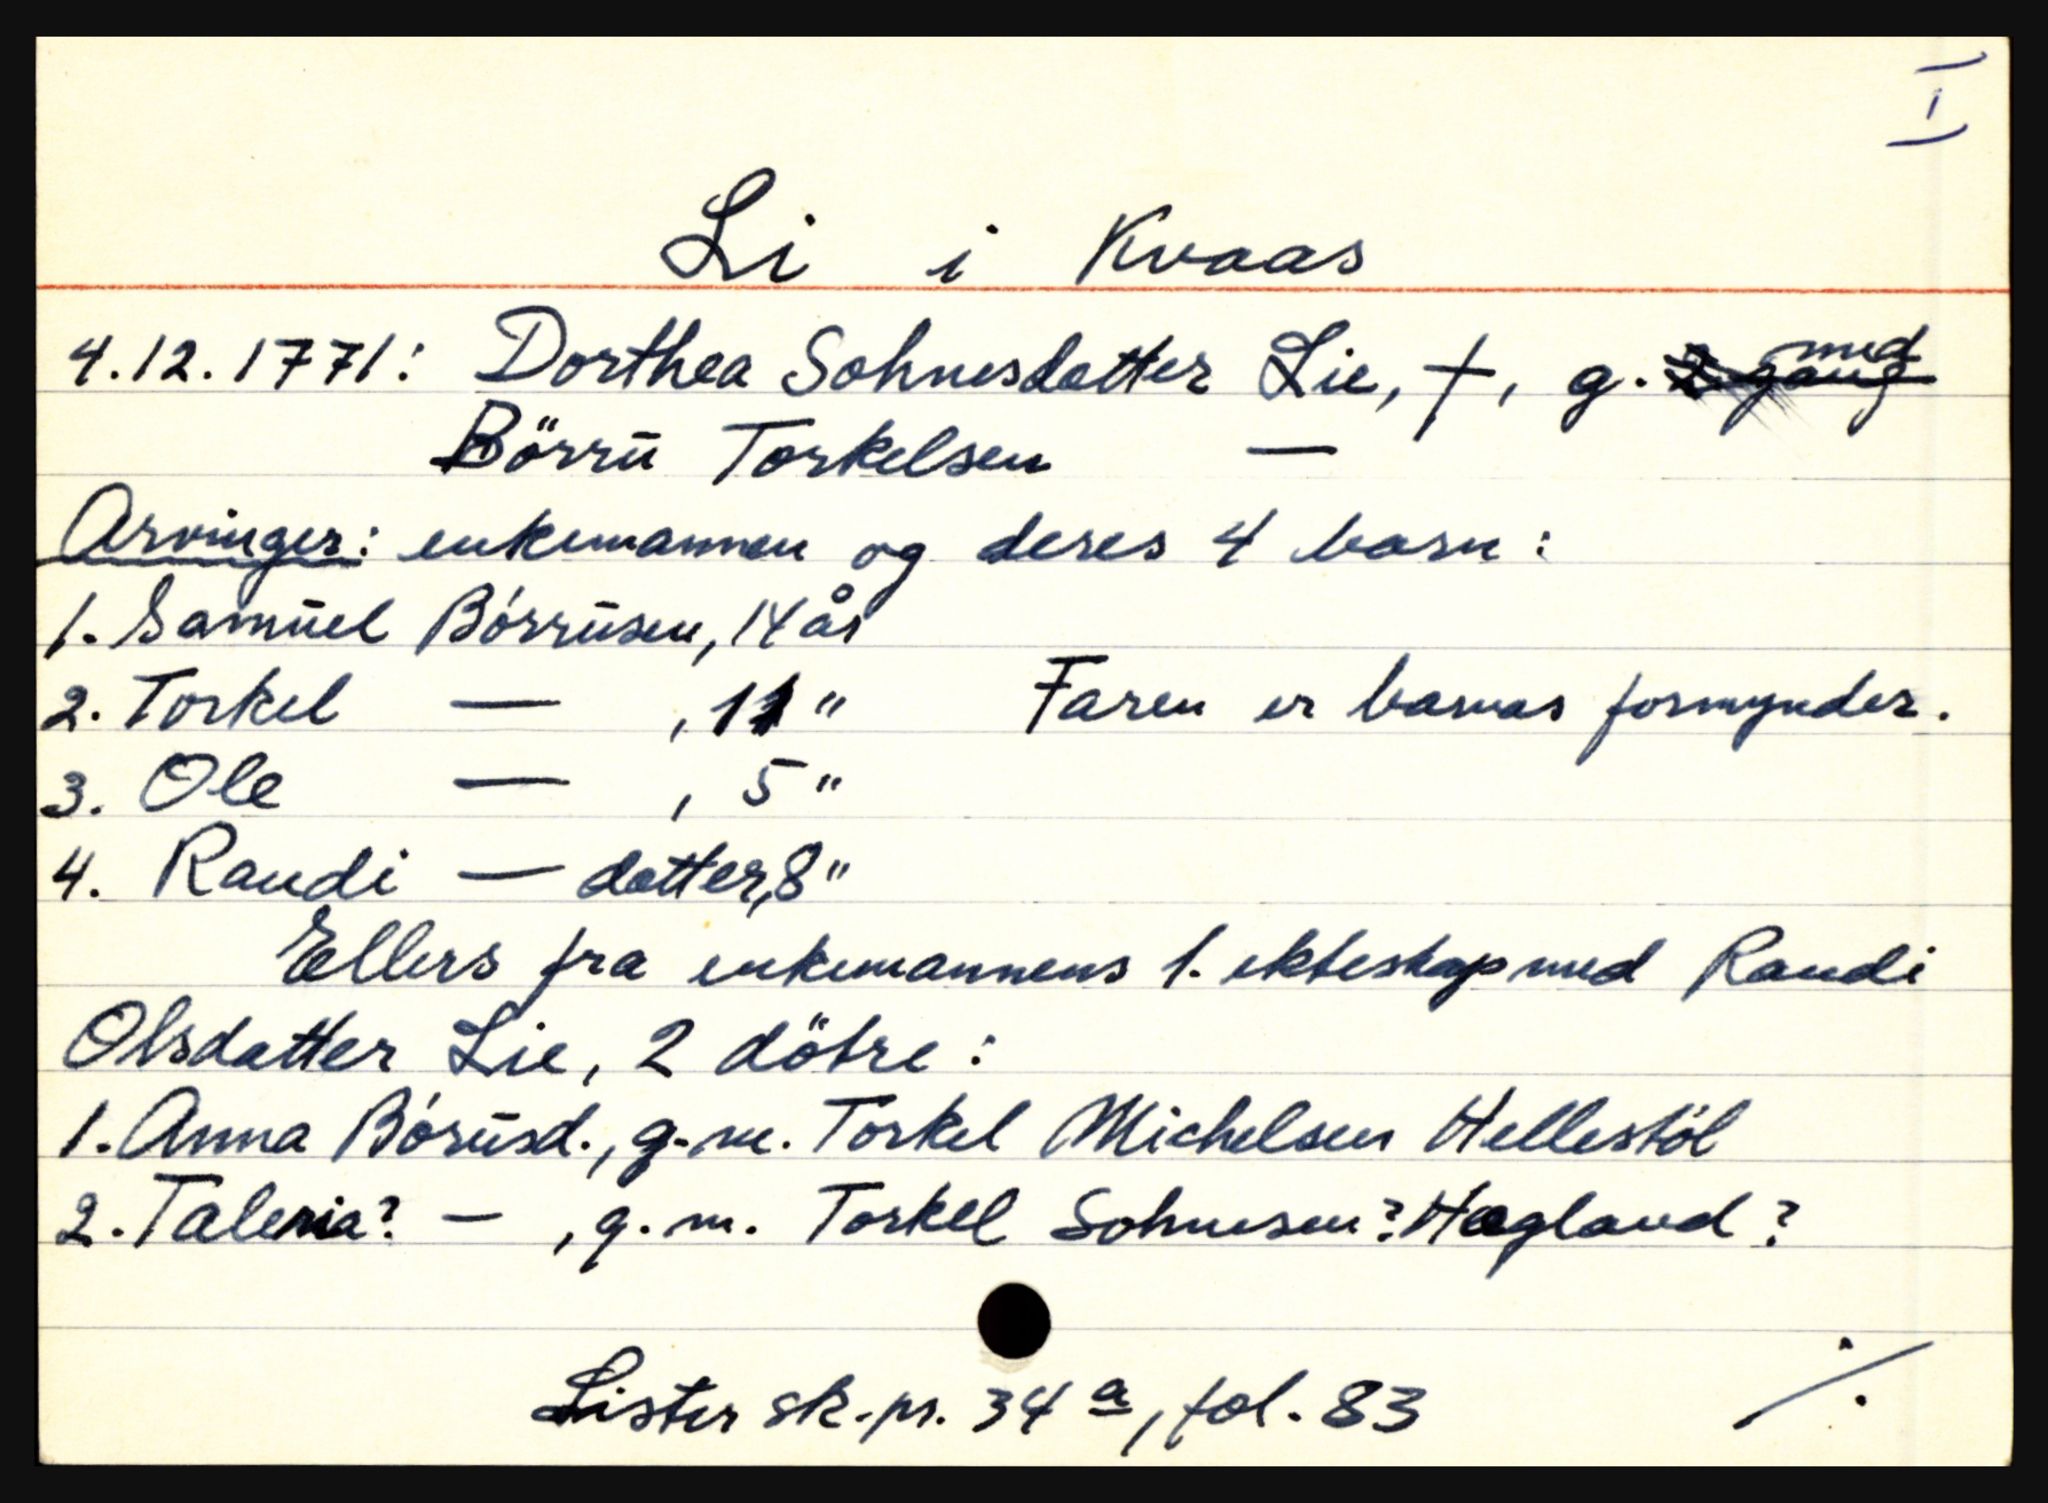 I
Li i Kvaas
4.12.1771: Dorthea Sohnesdatter Lie, †, g. ~~2 gang~~ med
Börrü Torkelsen —
Arvinger: enkemannen og deres 4 barn:
1. Samüel Börrüsen, 14 år
2. Torkel — , 11 " Faren er barnas formynder.
3. Ole — , 5 "
4. Randi — datter, 8 "
Ellers fra enkemannens 1. ekteskap med Randi
Olsdatter Lie, 2 dötre:
1. Anna Börüsd., g.m. Torkel Michelsen Hellestöl
2. Taleria? — , g.m. Torkel Sohnesen? Hægland?
Lister sk.pr. 34 a, fol. 83
./.